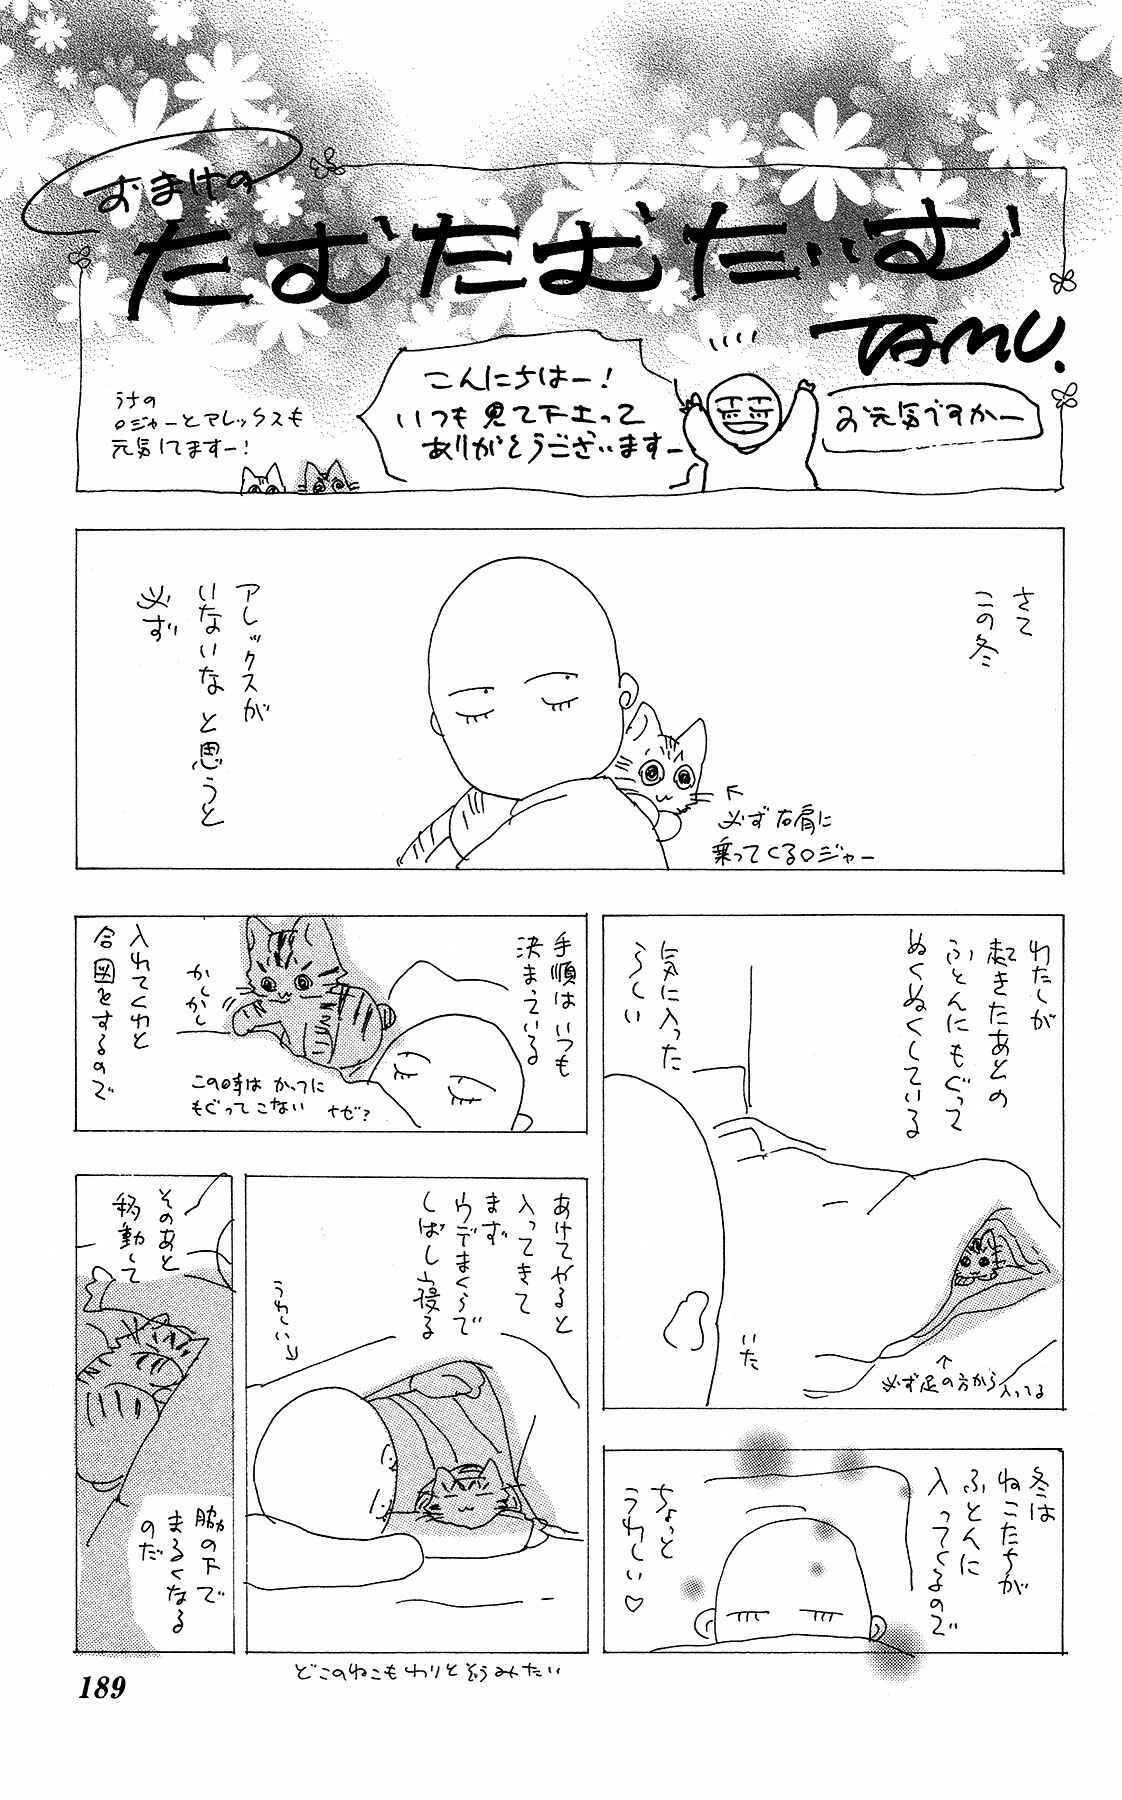 おまけの
たむたむたいむ
TAMU.
お元気ですかー
こんにちはー!
いつも見て下さって
ありがとうございますー
うちの
ロジャーとアレックスも
元気してますー!
さて
この冬
アレックスが
いないな と思うと
必ず
必ず右肩に
乗ってくるロジャー
わたしが
起きたあとの
ふとんにもぐって
ぬくぬくしている
気に入った
らしい
いた
↑
必ず足の方から入ってる
手順はいつも
決まっている
かしかし
入れてくれと
合図をするので
この時は かってに
もぐってこない ナゼ?
あけてやると
入ってきて
まず
ウデまくらで
しばし寝る
うれしい
そのあと
移動して
脇の下で
まるくなる
のだ
冬は
ねこたちが
ふとんに
入ってくるので
ちょっと
うれしい♡
どこのねこもわりとそうみたい
189